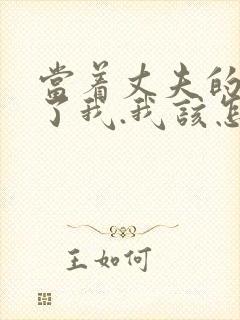 當着丈夫的
了我.我該怎
王如何